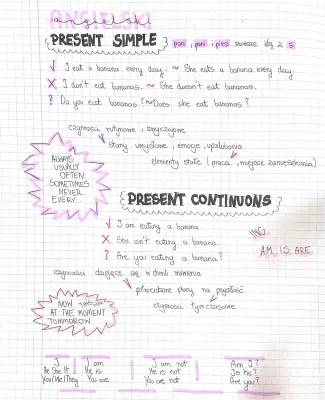 angielski
PRESENT SIMPLE pan, pani i pies zawsze idą z s
√ I eat a banana every day. ~ She eats a banana every day
X I don't eat bananas. ~ She doesn't eat bananas.
? Do you eat bananas? ~ Does she eat bananas?
czynności rutynowe, zwyczajowe
stany umysłowe, emocje, upodobania
elementy stałe (praca, miejsce zamieszkania)
ALWAYS
USUALLY
OFTEN
SOMETIMES
NEVER
EVERY...
PRESENT CONTINUONS
√ I am eating a banana
X She isn't eating a banana.
? Are you eating a banana?
ING
AM IS ARE
czynności dziejące się w chwili mówienia
potwierdzone plany na przyszłość
czynności tymczasowe
NOW
AT THE MOMENT
TOMMOROW
I I am I am not Am I?
He She It He is He is not Is he?
You/We/They You are You are not Are you?